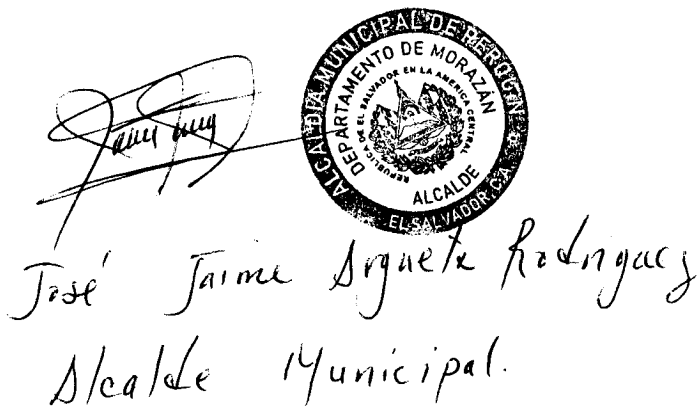 ALCALDIA MUNICIPAL DE PERQUIN
DEPARTAMENTO DE MORAZÁN
REPUBLICA DE EL SALVADOR EN LA AMERICA CENTRAL
ALCALDE
EL SALVADOR, C.A.
José Jaime Argueta Rodríguez
Alcalde Municipal.